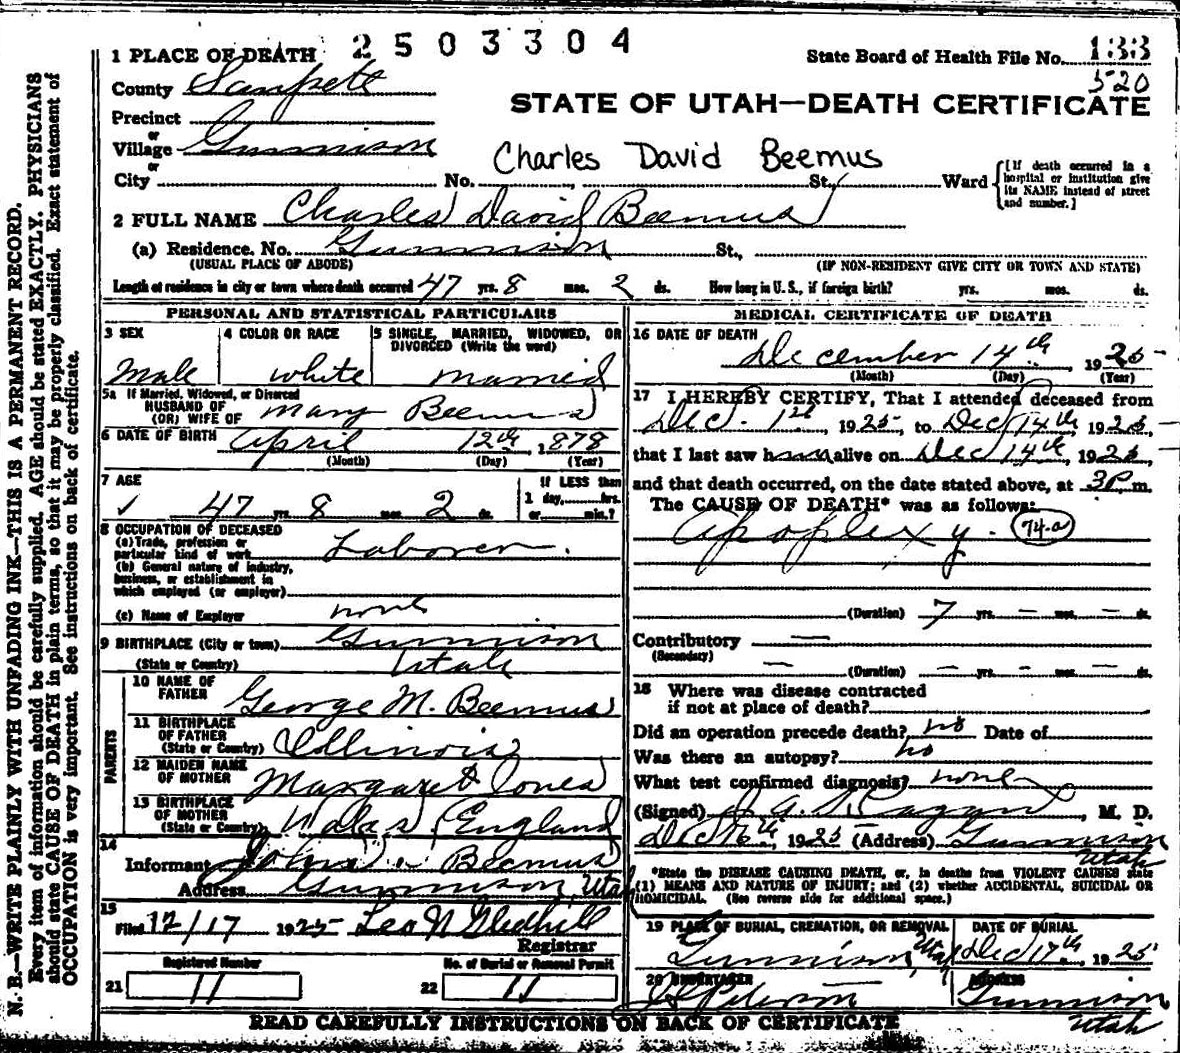 N. B.—WRITE PLAINLY WITH UNFADING INK—THIS IS A PERMANENT RECORD.
Every item of information should be carefully supplied. AGE should be stated EXACTLY. PHYSICIANS
should state CAUSE OF DEATH in plain terms, so that it may be properly classified. Exact statement of
OCCUPATION is very important. See instructions on back of certificate.
2503304
1 PLACE OF DEATH
State Board of Health File No. 133
520
County Sanpete
STATE OF UTAH—DEATH CERTIFICATE
Precinct
or
Village Gunnison
or
Charles David Beemus
City No. St., Ward
[If death occurred in a
hospital or institution give
its NAME instead of street
and number.]
2 FULL NAME Charles David Beemus
(a) Residence. No. Gunnison St.,
(USUAL PLACE OF ABODE) (IF NON-RESIDENT GIVE CITY OR TOWN AND STATE)
Length of residence in city or town where death occurred 47 yrs. 8 mos. 2 ds. How long in U. S., if foreign birth? yrs. mos. ds.
PERSONAL AND STATISTICAL PARTICULARS
3 SEX
Male
4 COLOR OR RACE
White
5 SINGLE, MARRIED, WIDOWED, OR
DIVORCED (Write the word)
Married
5a If Married, Widowed, or Divorced
HUSBAND OF
(OR) WIFE OF Mary Beemus
6 DATE OF BIRTH April 12th, 1878
(Month) (Day) (Year)
7 AGE
47 yrs. 8 mos. 2 ds.
If LESS than
1 day, hrs.
or min.?
8 OCCUPATION OF DECEASED
(a) Trade, profession or
particular kind of work Laborer.
(b) General nature of industry,
business, or establishment in
which employed (or employer)
(c) Name of Employer none
9 BIRTHPLACE (City or town) Gunnison
(State or Country) Utah
PARENTS
10 NAME OF
FATHER George M. Beemus
11 BIRTHPLACE
OF FATHER
(State or Country) Illinois
12 MAIDEN NAME
OF MOTHER Margaret Jones
13 BIRTHPLACE
OF MOTHER
(State or Country) Wales England
14
Informant Beemus
Address Gunnison, Utah
15
Filed 12/17 1925 Leo N Gledhill
Registrar
Registered Number
21 11
No. of Burial or Removal Permit
22 11
MEDICAL CERTIFICATE OF DEATH
16 DATE OF DEATH
December 14th 1925
(Month) (Day) (Year)
17 I HEREBY CERTIFY, That I attended deceased from
Dec. 1st, 1925, to Dec 14th, 1925,
that I last saw him alive on Dec 14th, 1925,
and that death occurred, on the date stated above, at 3P m.
The CAUSE OF DEATH* was as follows:
Apoplexy. 74-a
(Duration) 7 yrs. — mos. — ds.
Contributory —
(Secondary)
— (Duration) — yrs. — mos. — ds.
18 Where was disease contracted
if not at place of death?
Did an operation precede death? no Date of
Was there an autopsy? no
What test confirmed diagnosis? none
(Signed) Hagan, M. D.
Dec 16th, 1925 (Address) Gunnison
Utah
*State the DISEASE CAUSING DEATH, or, in deaths from VIOLENT CAUSES state
(1) MEANS AND NATURE OF INJURY; and (2) whether ACCIDENTAL, SUICIDAL OR
HOMICIDAL. (See reverse side for additional space.)
19 PLACE OF BURIAL, CREMATION, OR REMOVAL
Gunnison, Utah
DATE OF BURIAL
Dec 17th, 1925
20 UNDERTAKER
Peterson
ADDRESS
Gunnison
Utah
READ CAREFULLY INSTRUCTIONS ON BACK OF CERTIFICATE